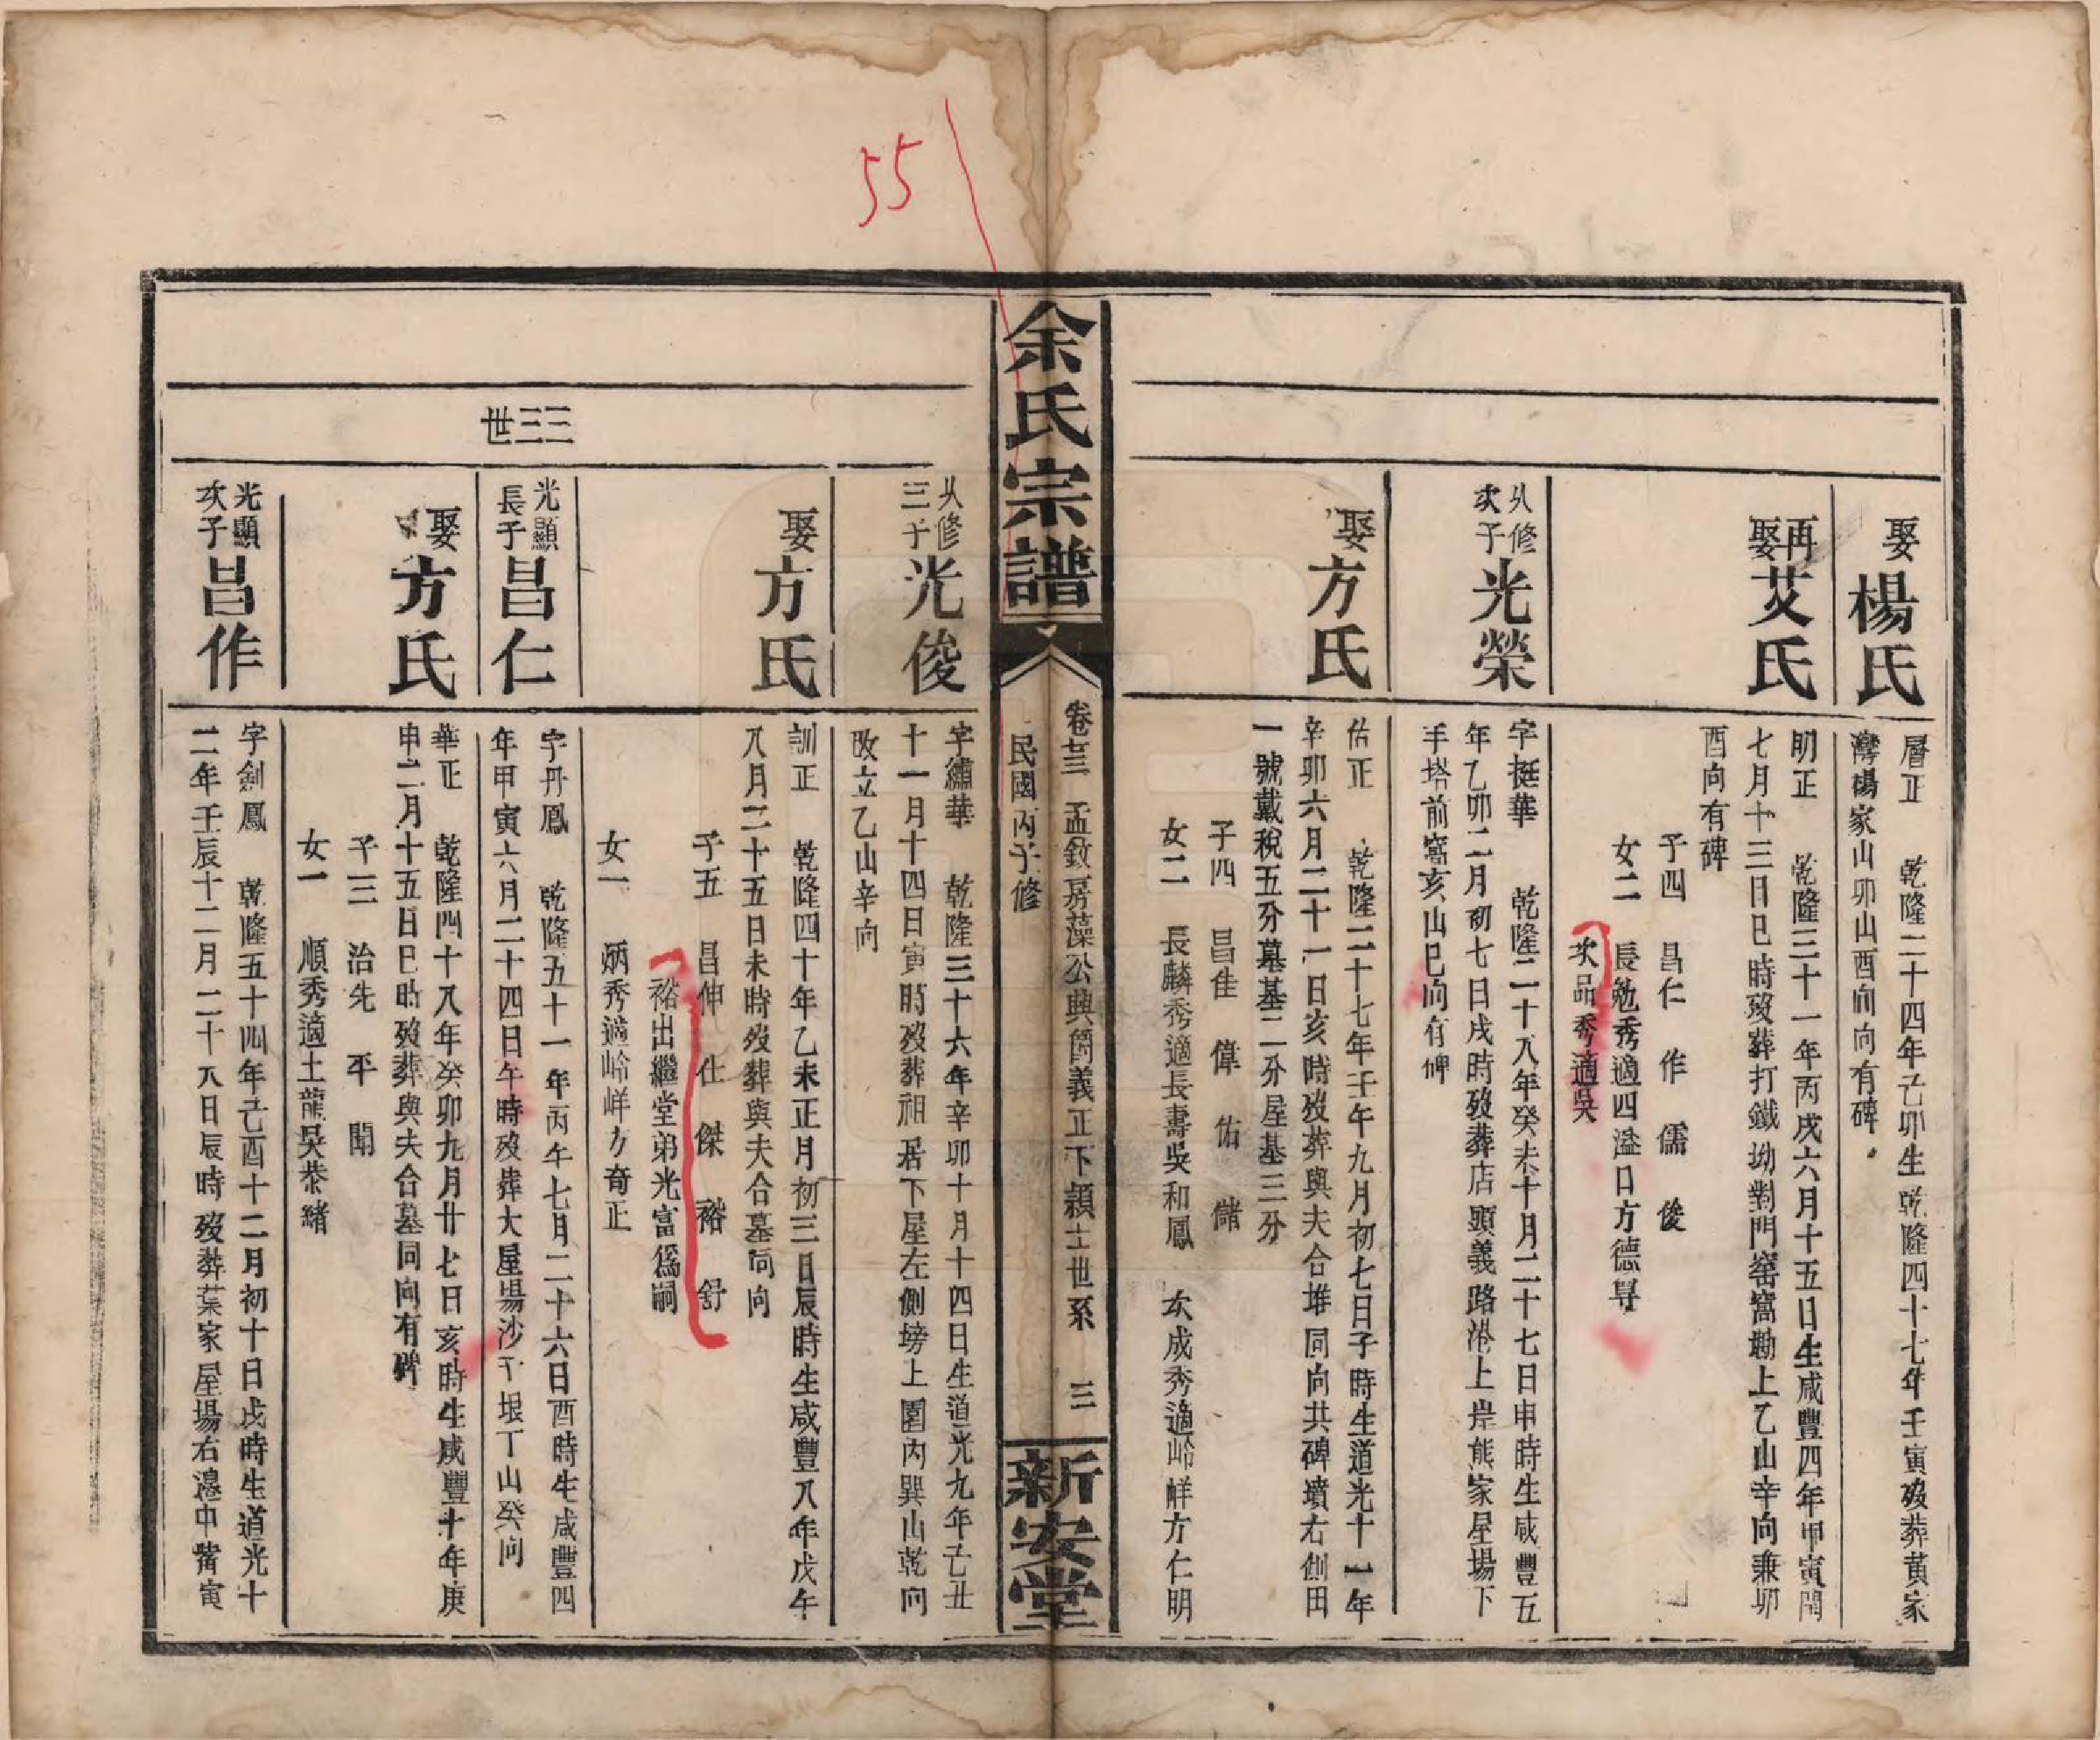 娶楊氏
層正 乾隆二十四年己卯生乾隆四十七年壬寅歿葬黃家
灣楊家山卯山酉向有碑
再娶艾氏
明正 乾隆三十一年丙戌六月十五日生咸豐四年甲寅閏
七月十三日巳時歿葬打鐵坳對門窑窩勘上乙山辛向兼卯
酉向有碑
子四 昌仁 作 儒 俊
女二 長勉秀適四溢口方德尋
次品秀適吳
以修次子光榮
字挺華 乾隆二十八年癸未十月二十七日申時生咸豐五
年乙卯二月初七日戌時歿葬店頭義路港上岸熊家屋場下
手塔前窩亥山巳向有碑
娶方氏
佑正 乾隆二十七年壬午九月初七日子時生道光十一年
辛卯六月二十一日亥時歿葬與夫合堆同向共碑墳右側田
一號戴稅五分墓基二分屋基三分
子四 昌佳 偉 佑 儲
女二 長麟秀適長壽吳和鳳 次成秀適岭㟄方仁明
余氏宗譜
卷七三 孟敘房藻公典爵義正下穎士世系 三
民國丙子修
新安堂
以修三子光俊
字繡華 乾隆三十六年辛卯十月十四日生道光九年己丑
十一月十四日寅時歿葬祖居下屋左側塝上園內巽山乾向
改立乙山辛向
娶方氏
訓正 乾隆四十年乙未正月初三日辰時生咸豐八年戊午
八月二十五日未時歿葬與夫合墓同向
子五 昌伸 仕 傑 裕 舒
裕出繼堂弟光富為嗣
女一 炳秀適岭㟄方奇正
三三世
光顯長子昌仁
字丹鳳 乾隆五十一年丙午七月二十六日酉時生咸豐四
年甲寅六月二十四日午時歿葬大屋場沙干垠丁山癸向
娶方氏
華正 乾隆四十八年癸卯九月廿七日亥時生咸豐十年庚
申二月十五日巳時歿葬與夫合墓同向有碑
子三 治先 平 聞
女一 順秀適土龍吳恭緒
光顯次子昌作
字劍鳳 乾隆五十四年己酉十二月初十日戌時生道光十
二年壬辰十二月二十八日辰時歿葬葉家屋場右邊中嘴寅
55